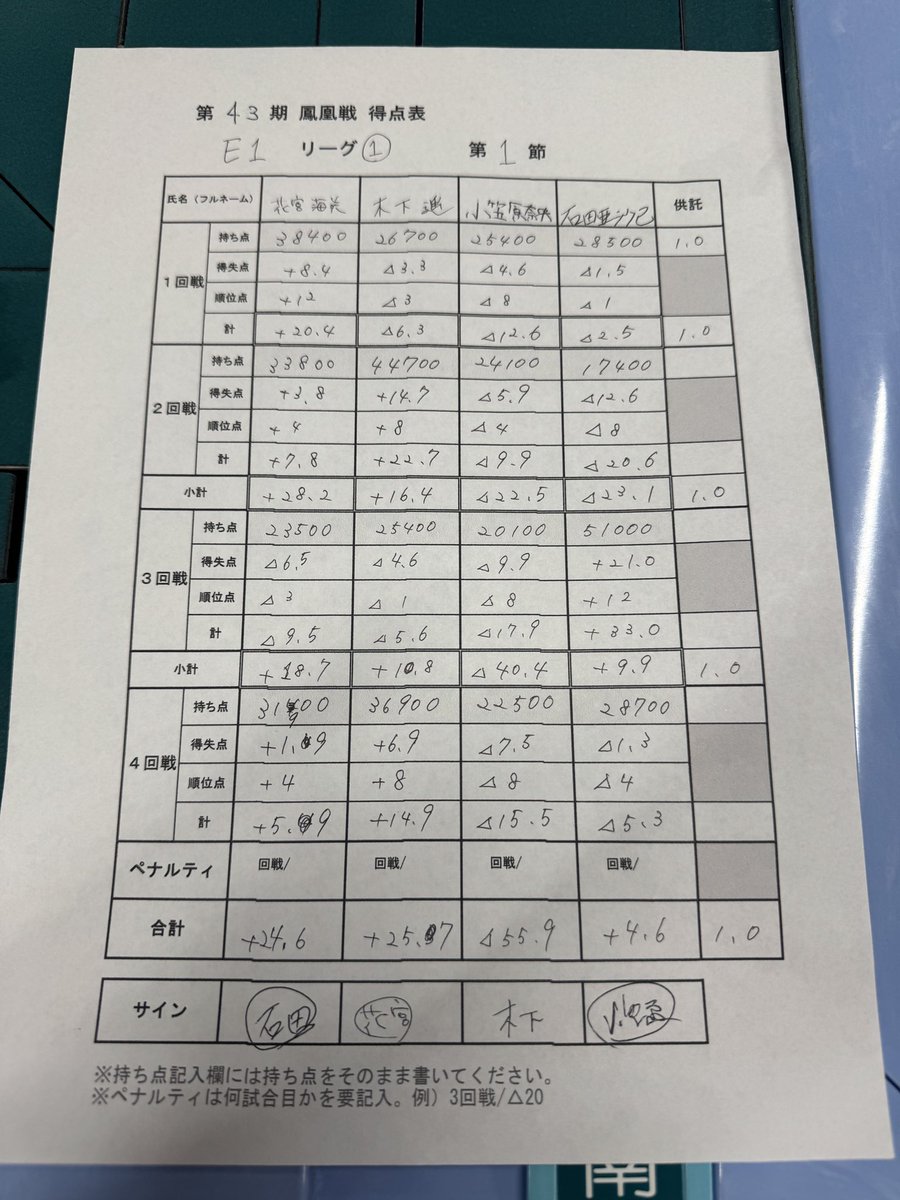 第 43 期 鳳凰戦 得点表
E1 リーグ ① 第 1 節
氏名（フルネーム） 花宮海美 木下 遥 小笠原奈央 石田亜沙己 供託
1回戦
持ち点 38400 26700 25400 28500 1.0
得失点 +8.4 △3.3 △4.6 △1.5
順位点 +12 △3 △8 △1
計 +20.4 △6.3 △12.6 △2.5 1.0
2回戦
持ち点 33800 44700 24100 17400
得失点 +3.8 +14.7 △5.9 △12.6
順位点 +4 +8 △4 △8
計 +7.8 +22.7 △9.9 △20.6
小計 +28.2 +16.4 △22.5 △23.1 1.0
3回戦
持ち点 23500 25400 20100 51000
得失点 △6.5 △4.6 △9.9 +21.0
順位点 △3 △1 △8 +12
計 △9.5 △5.6 △17.9 +33.0
小計 +18.7 +10.8 △40.4 +9.9 1.0
4回戦
持ち点 31900 36900 22500 28700
得失点 +1.9 +6.9 △7.5 △1.3
順位点 +4 +8 △8 △4
計 +5.9 +14.9 △15.5 △5.3
ペナルティ 回戦/ 回戦/ 回戦/ 回戦/
合計 +24.6 +25.7 △55.9 +4.6 1.0
サイン 石田 花宮 木下
※持ち点記入欄には持ち点をそのまま書いてください。
※ペナルティは何試合目かを要記入。例）3回戦/△20
南